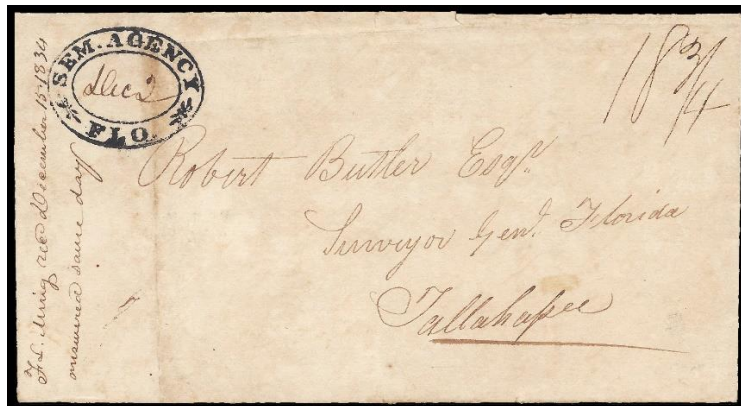 SEM. AGENCY
Dec 2
FLO.
18 3/4
Robert Butler Esqr.
Surveyor Genl. Florida
Tallahassee
F. L. Ming recd December 15 1834
answered same day